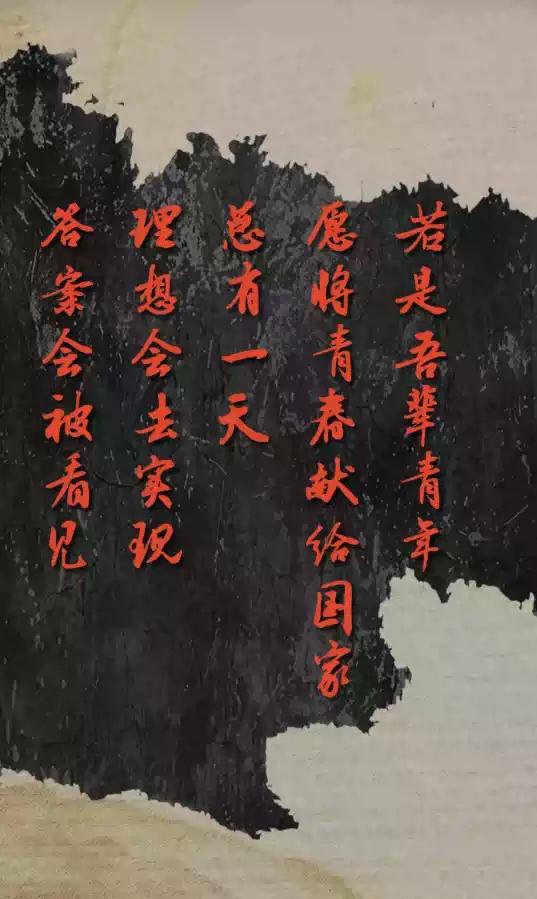 若是吾辈青年
愿将青春献给国家
总有一天
理想会去实现
答案会被看见